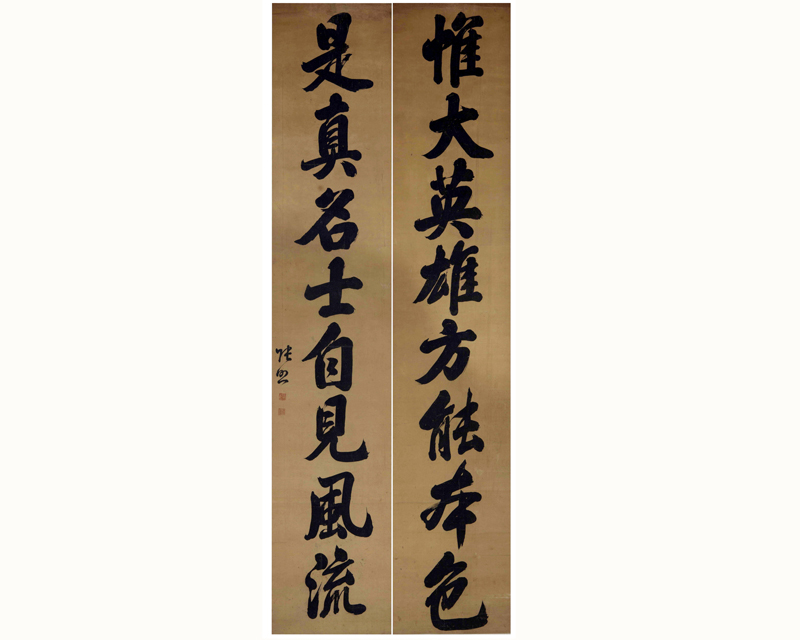 惟大英雄方能本色
是真名士自見風流
張照